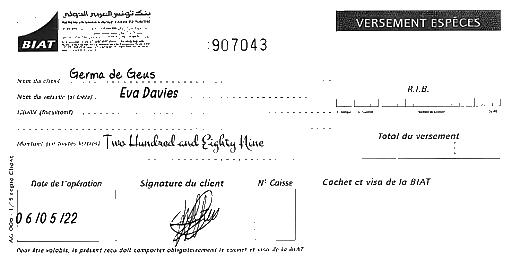 بنك تونس العربي الدولي
BIAT
VERSEMENT ESPÈCES
907043
Nom du client Germa de Geus
Nom du verseur (si tiers) . Eva Davies
R.I.B.
Libellé (facultatif)
Montant (en toutes lettres) Two Hundred and Eighty Nine
Total du versement
Date de l'opération Signature du client N° Caisse Cachet et visa de la BIAT
06/05/22
Pour être valable, le présent reçu doit comporter obligatoirement le cachet et visa de la BIAT